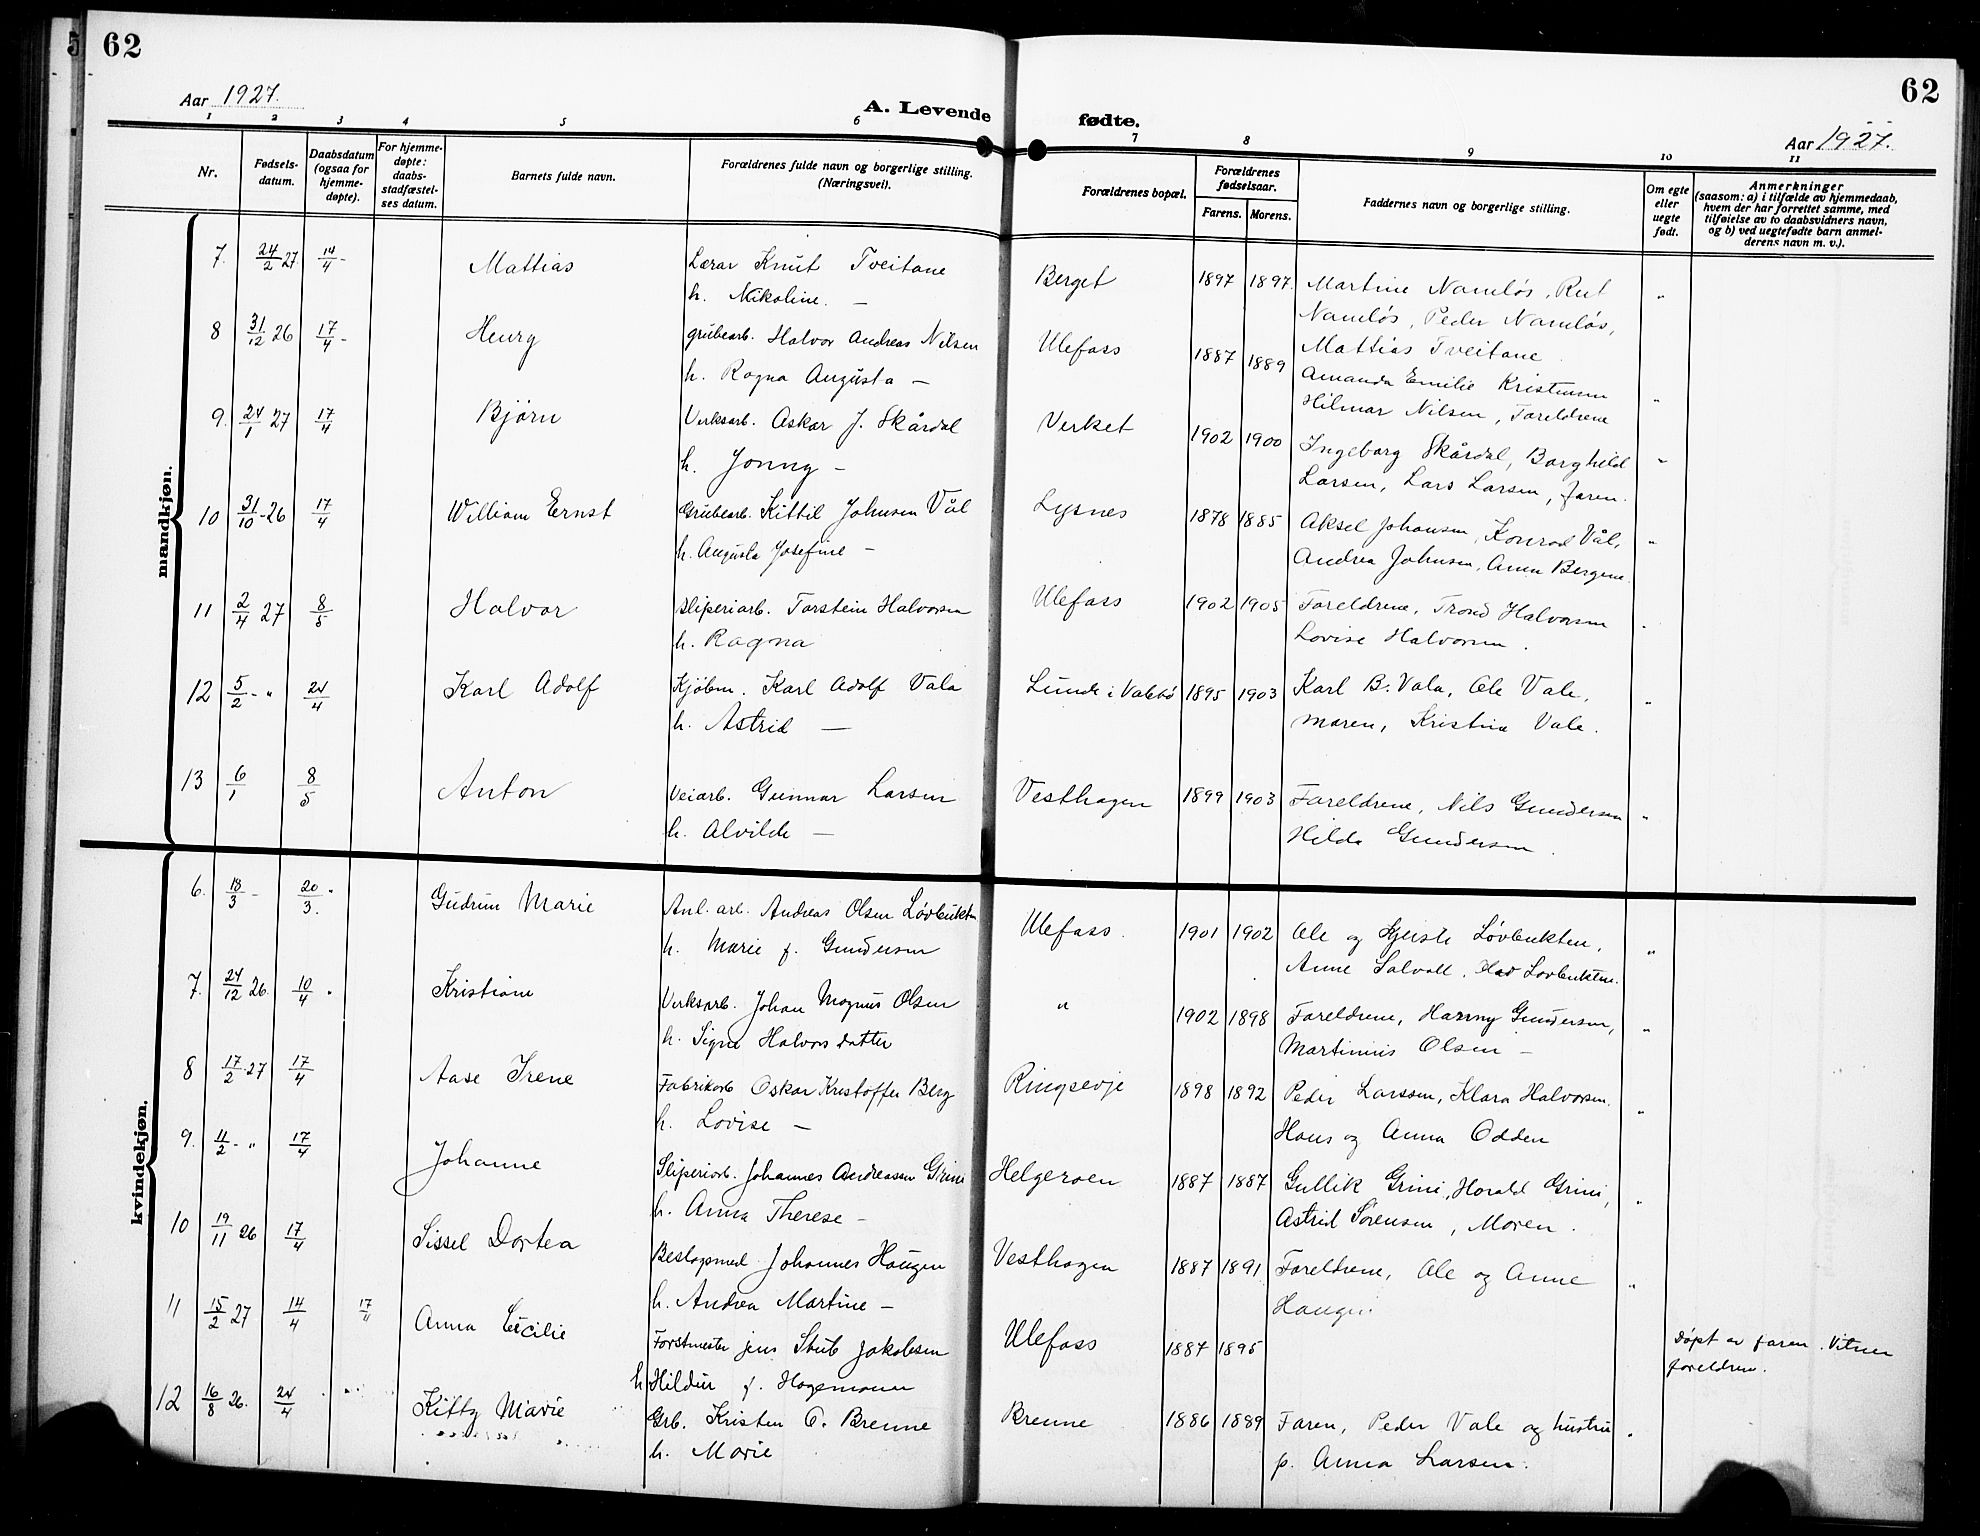 62
62
Aar 1927.
A. Levende fødte.
Aar 1927.
1 2 3 4 5 6 7 8 9 10 11
Nr.
Fødsels-
datum.
Daabsdatum
(ogsaa for
hjemme-
døpte).
For hjemme-
døpte:
daabs-
stadfæstel-
ses datum.
Barnets fulde navn.
Forældrenes fulde navn og borgerlige stilling.
(Næringsvei).
Forældrenes bopæl.
Forældrenes
fødselsaar.
Farens. Morens.
Faddernes navn og borgerlige stilling.
Om egte
eller
uegte
født.
Anmerkninger
(saasom: a) i tilfælde av hjemmedaab,
hvem der har forrettet samme, med
tilføielse av to daabsvidners navn,
og b) ved uegtefødte barn anmel-
derens navn m. v.).
mandkjøn.
7. 24/2 27. 14/4 - Mattias Lærar Knut Tveitane Berget 1897 1897. Martine Namløs, Rut "
h. Nikoline. — Namløs, Peder Namløs,
Mattias Tveitane.
8 31/12 26 17/4 - Henry grubearb. Halvor Andreas Nilsen Ulefoss 1887 1889 Amanda Emilie Kristensen "
h. Ragna Augusta — Hilmar Nilsen, Foreldrene
9. 24/1 27 17/4 Bjørn Verksarb. Askar J. Skårdal Verket 1902 1900 Ingeborg Skårdal, Borghild "
h. Jonny — Larsen, Lars Larsen, faren.
10 31/10 - 26 17/4 William Ernst Grubearb. Kittil Johnsen Vål Lysnes 1878 1885 Aksel Johansen, Konrad Vål, "
h. Augusta Josefine — Andrea Johnsen, Anna Bergene.
11 2/4 27 8/5 Halvor Sliperiarb. Torstein Halvorsen Ulefoss 1902 1905 Foreldrene, Trond Halvorsen "
h. Ragna Lovise Halvorsen.
12 5/2 - " 24/4 Karl Adolf Kjøbm. Karl Adolf Vala Lunde i Valebø 1895 1903 Karl B. Vala, Ole Vale, "
h. Astrid — moren, Kristine Vale.
13 6/1 8/5 Anton Veiarb. Gunnar Larsen Vesthagen 1899 1903 Foreldrene, Nils Gundersen "
h. Alvilde — Hilda Gundersen.
kvindekjøn.
6. 13/3 - 20/3. " Gudrun Marie Anl. arb. Andreas Olsen Løvbukten Ulefoss. 1901 1902 Ole og Løvbukten, "
h. Marie f. Gundersen Anne Solvoll. Løvbukten.
7. 24/12 26. 10/4 " Kristiane Verksarb. Johan Magnus Olsen " 1902 1898 Foreldrene, Harry Gundersen, "
h. Signe Halvorsdatter Martinius Olsen —
8 17/2 27 17/4 Aase Irene Fabrikarb Oskar Kristoffer Berg Ringsevje 1898 1892 Peder Larssen, Klara Halvorsen. "
h. Lovise — Hans og Anna Odden
9. 11/2 - " 17/4 Johanne Sliperiarb. Johannes Andreassen Grini Helgeroen 1887 1887 Gullik Grini, Harald Grini, "
h. Anna Therese — Astrid Sørensen, Moren.
10 19/11 26 17/4 Sissel Dortea Beslagsmed Johannes Haugen Vesthagen 1887 1891 Foreldrene, Ole og Anne "
h. Andrea Martine — Haugen.
11 15/2 27 14/4 17/4 Anna Cecilie Forstmester Jens Stub Jakobsen Ulefoss 1887 1895 Døpt av faren. Vitner
h Hildur f. Hagemann foreldrene.
12 16/8 26. 24/4 Kitty Marie Grb. Kristen O. Brenne Brenne 1886 1889 Faren, Peder Vale og hustru "
h. Marie p. Anna Larsen.